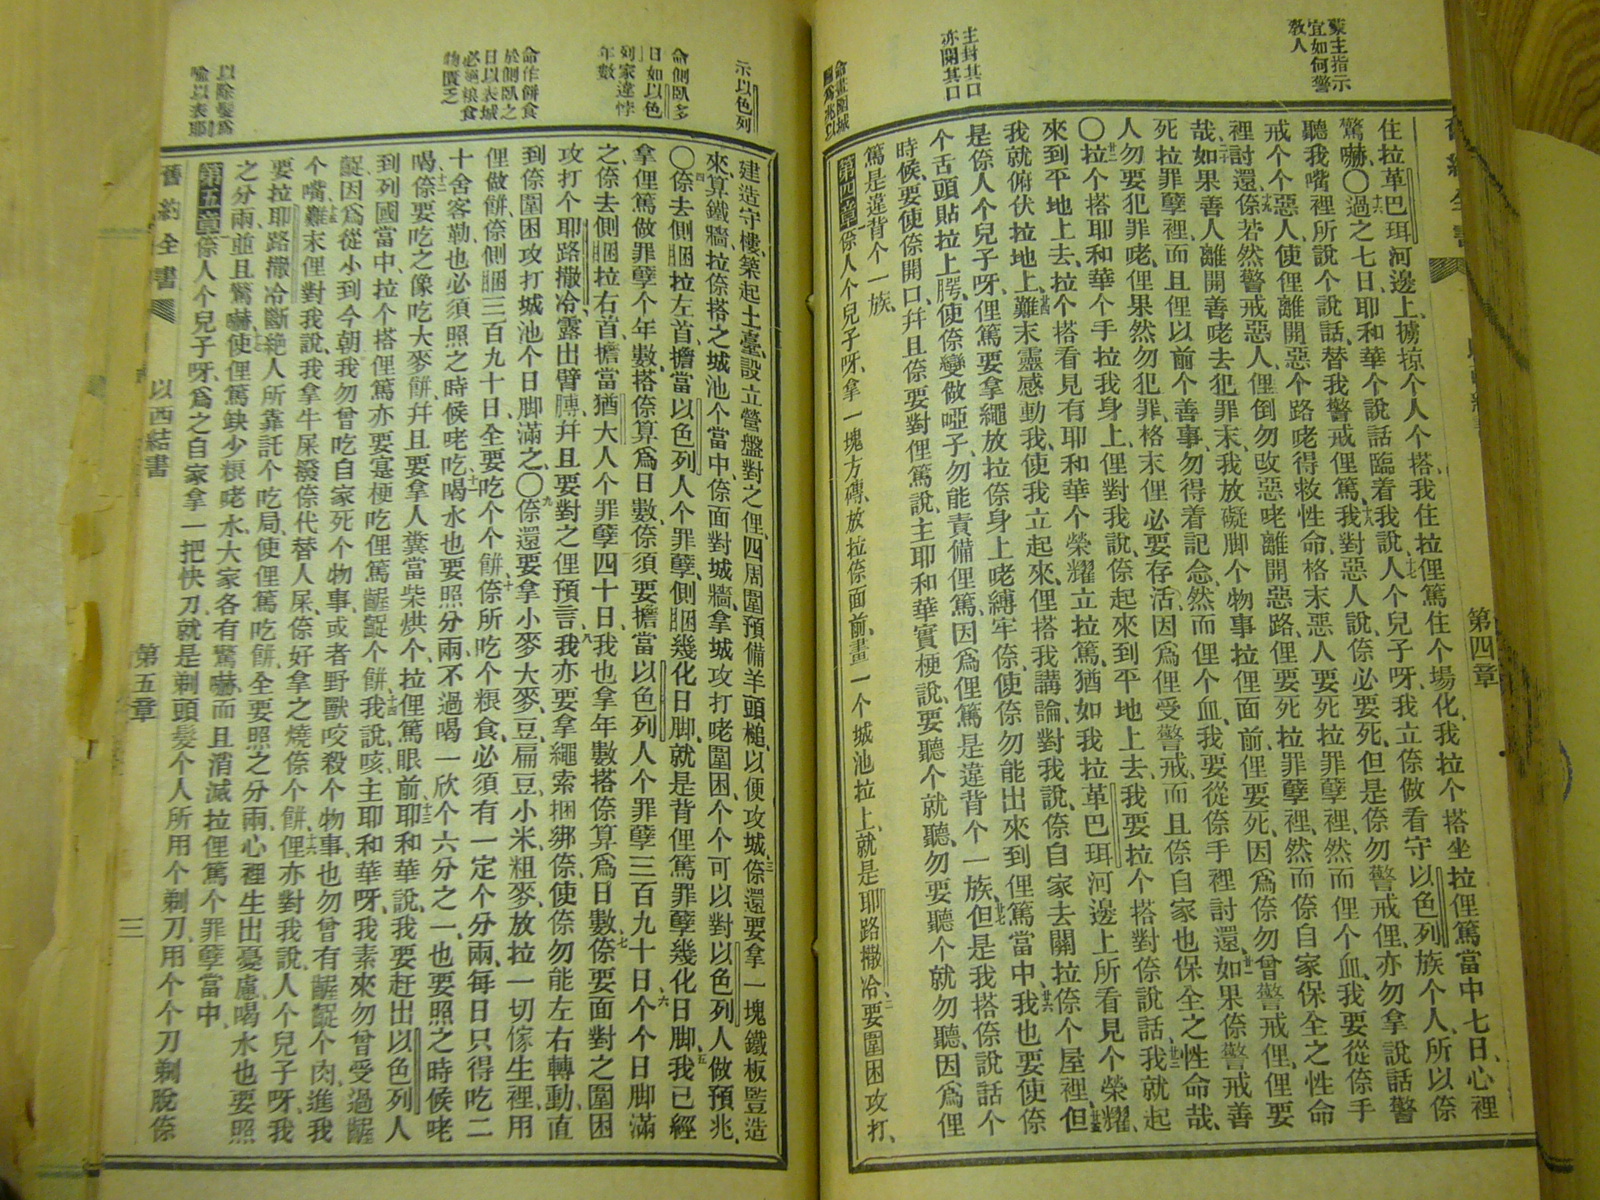 蒙主指示
宜如何警
教人
主封其口
亦開其口
命畫圍城
圖爲兆以
第四章
住拉革巴珥河邊上擄掠个人个搭、我住拉俚篤住个場化、我拉个搭坐拉俚篤當中七日、心裡
驚嚇、〇過之七日、耶和華个說話臨着我說、人个兒子呀、我立倷做看守以色列族个人、所以倷
聽我嘴裡所說个說話、替我警戒俚篤、我對惡人說、倷必要死、但是倷勿警戒俚、亦勿拿說話警
戒个个惡人、使俚離開惡个路咾得救性命、格末惡人要死拉罪孽裡、然而俚个血、我要從倷手
裡討還、倷若然警戒惡人、俚倒勿改惡咾離開惡路、俚要死拉罪孽裡、然而倷自家保全之性命
哉、如果善人離開善咾去犯罪末、我放礙脚个物事拉俚面前、俚要死、因爲倷勿曾警戒俚、俚要
死拉罪孽裡、而且俚以前个善事、勿得着記念、然而俚个血、我要從倷手裡討還、如果倷警戒善
人勿要犯罪咾、俚果然勿犯罪、格末俚必要存活、因爲俚受警戒、而且倷自家也保全之性命哉、
〇拉个搭耶和華个手拉我身上、俚對我說、倷起來到平地上去、我要拉个搭對倷說話、我就起
來到平地上去、拉个搭看見有耶和華个榮耀立拉篤、猶如我拉革巴珥河邊上所看見个榮耀、
我就俯伏拉地上、難末靈感動我、使我立起來、俚搭我講論、對我說、倷自家去關拉倷个屋裡、但
是倷人个兒子呀、俚篤要拿繩放拉倷身上咾縛牢倷、使倷勿能出來到俚篤當中、我也要使倷
个舌頭貼拉上腭、使倷變做啞子、勿能責備俚篤、因爲俚篤是違背个一族、但是我搭倷說話个
時候、要使倷開口、幷且倷要對俚篤說、主耶和華實梗說、要聽个就聽、勿要聽个就勿聽、因爲俚
篤是違背个一族、
第四章 倷人个兒子呀、拿一塊方磚、放拉倷面前、畫一个城池拉上、就是耶路撒冷、要圍困攻打、
示以色列
命側臥多
日如以色
列家違悖
年數
命作餅食
於側臥之
日以表城
必絕糧食
物匱乏
以除髮爲
喻以表耶
建造守樓、築起土臺、設立營盤對之俚、四周圍預備羊頭槌、以便攻城、倷還要拿一塊鐵板豎造
來算鐵牆、拉倷搭之城池个當中、倷面對城牆、拿城攻打咾圍困个个可以對以色列人做預兆、
〇倷去側睏拉左首、擔當以色列人个罪孽、側睏幾化日脚、就是背俚篤罪孽幾化日脚、我已經
拿俚篤做罪孽个年數、搭倷算爲日數、倷須要擔當以色列人个罪孽三百九十日、个个日脚滿
之、倷去側睏拉右首、擔當猶大人个罪孽四十日、我也拿年數搭倷算爲日數、倷要面對之圍困
攻打个耶路撒冷、露出臂膊、幷且要對之俚預言、我亦要拿繩索捆綁倷、使倷勿能左右轉動、直
到倷圍困攻打城池个日脚滿之、〇倷還要拿小麥、大麥、豆、扁豆、小米、粗麥、放拉一切傢生裡、用
俚做餅、倷側睏三百九十日、全要吃个个餅、倷所吃个粮食、必須有一定个分兩、每日只得吃二
十舍客勒、也必須照之時候咾吃、喝水也要照分兩、不過喝一欣个六分之一、也要照之時候咾
喝、倷要吃之像吃大麥餅、幷且要拿人糞當柴烘个、拉俚篤眼前、耶和華說、我要赶出以色列人
到列國當中、拉个搭俚篤亦要寔梗吃俚篤齷齪个餅、我說、咳、主耶和華呀、我素來勿曾受過齷
齪、因爲從小到今朝、我勿曾吃自家死个物事、或者野獸咬殺个物事、也勿曾有齷齪个肉、進我
个嘴、難末俚對我說、我拿牛屎撥倷代替人屎、倷好拿之燒倷个餅、俚亦對我說、人个兒子呀、我
要拉耶路撒冷斷絕人所靠託个吃局、使俚篤吃餅、全要照之分兩、心裡生出憂慮、喝水也要照
之分兩、並且驚嚇、使俚篤缺少粮咾水、大家各有驚嚇、而且消滅拉俚篤个罪孽當中、
第五章 倷人个兒子呀、爲之自家拿一把快刀、就是剃頭髮个人所用个剃刀、用个个刀剃脫倷
舊約全書 以西結書 第五章 三